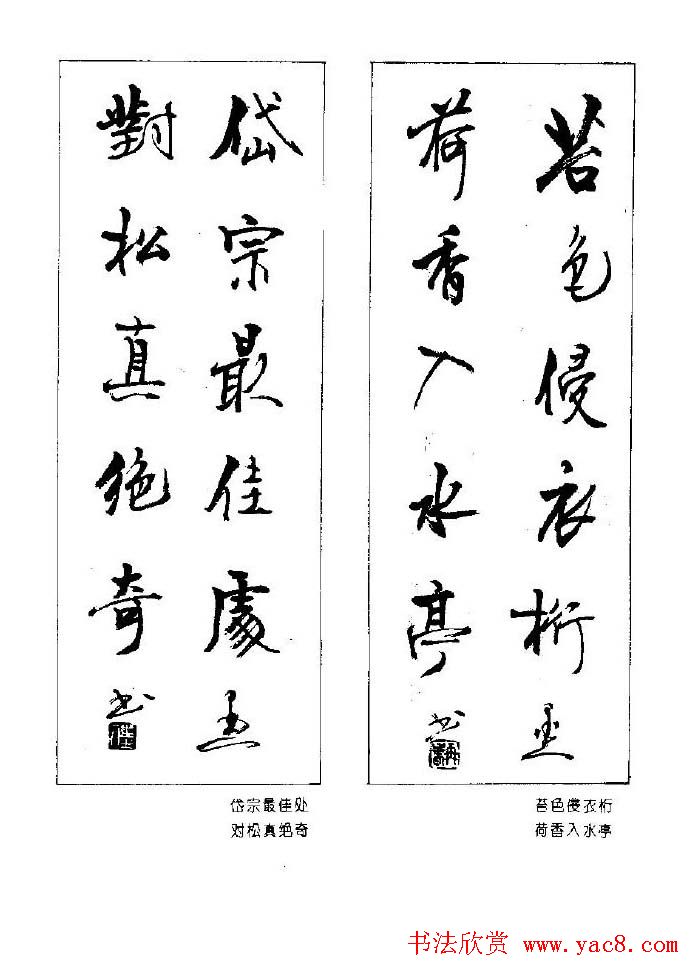 苔色侵衣桁
荷香入水亭
书
岱宗最佳處
對松真絶奇
书
苔色侵衣桁
荷香入水亭
岱宗最佳处
对松真绝奇
书法欣赏 www.yac8.com